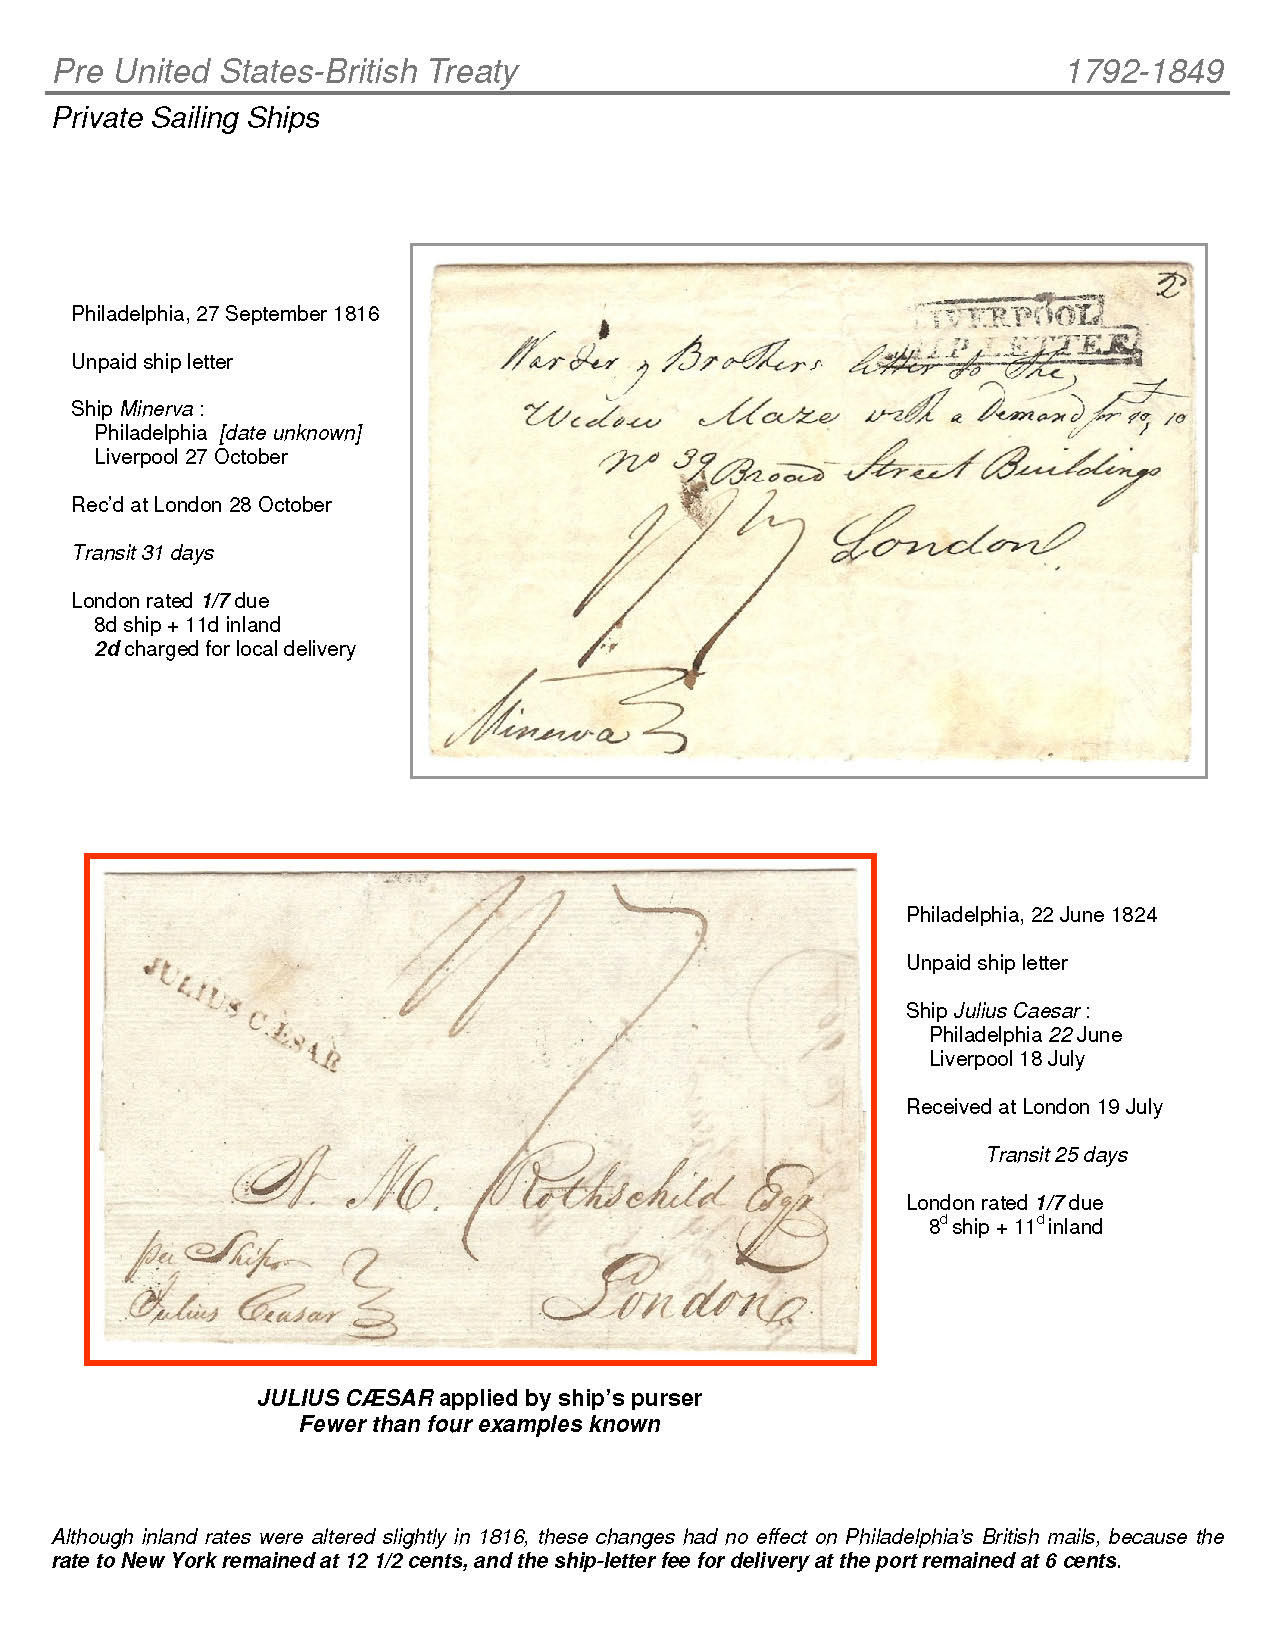 Pre United States-British Treaty 1792-1849
Private Sailing Ships
Philadelphia, 27 September 1816
Unpaid ship letter
Ship Minerva :
Philadelphia [date unknown]
Liverpool 27 October
Rec'd at London 28 October
Transit 31 days
London rated 1/7 due
8d ship + 11d inland
2d charged for local delivery
2
LIVERPOOL
SHIP LETTER
Warder & Brothers letter to the
Widow Maze with a Demand for
No 39 Broad Street Buildings
London
1/7
Minerva
1/7
JULIUS CÆSAR
N. M. Rothschild Esqr
London
per Ship
Julius Ceasar
Philadelphia, 22 June 1824
Unpaid ship letter
Ship Julius Caesar :
Philadelphia 22 June
Liverpool 18 July
Received at London 19 July
Transit 25 days
London rated 1/7 due
8d ship + 11d inland
JULIUS CÆSAR applied by ship's purser
Fewer than four examples known
Although inland rates were altered slightly in 1816, these changes had no effect on Philadelphia's British mails, because the
rate to New York remained at 12 1/2 cents, and the ship-letter fee for delivery at the port remained at 6 cents.